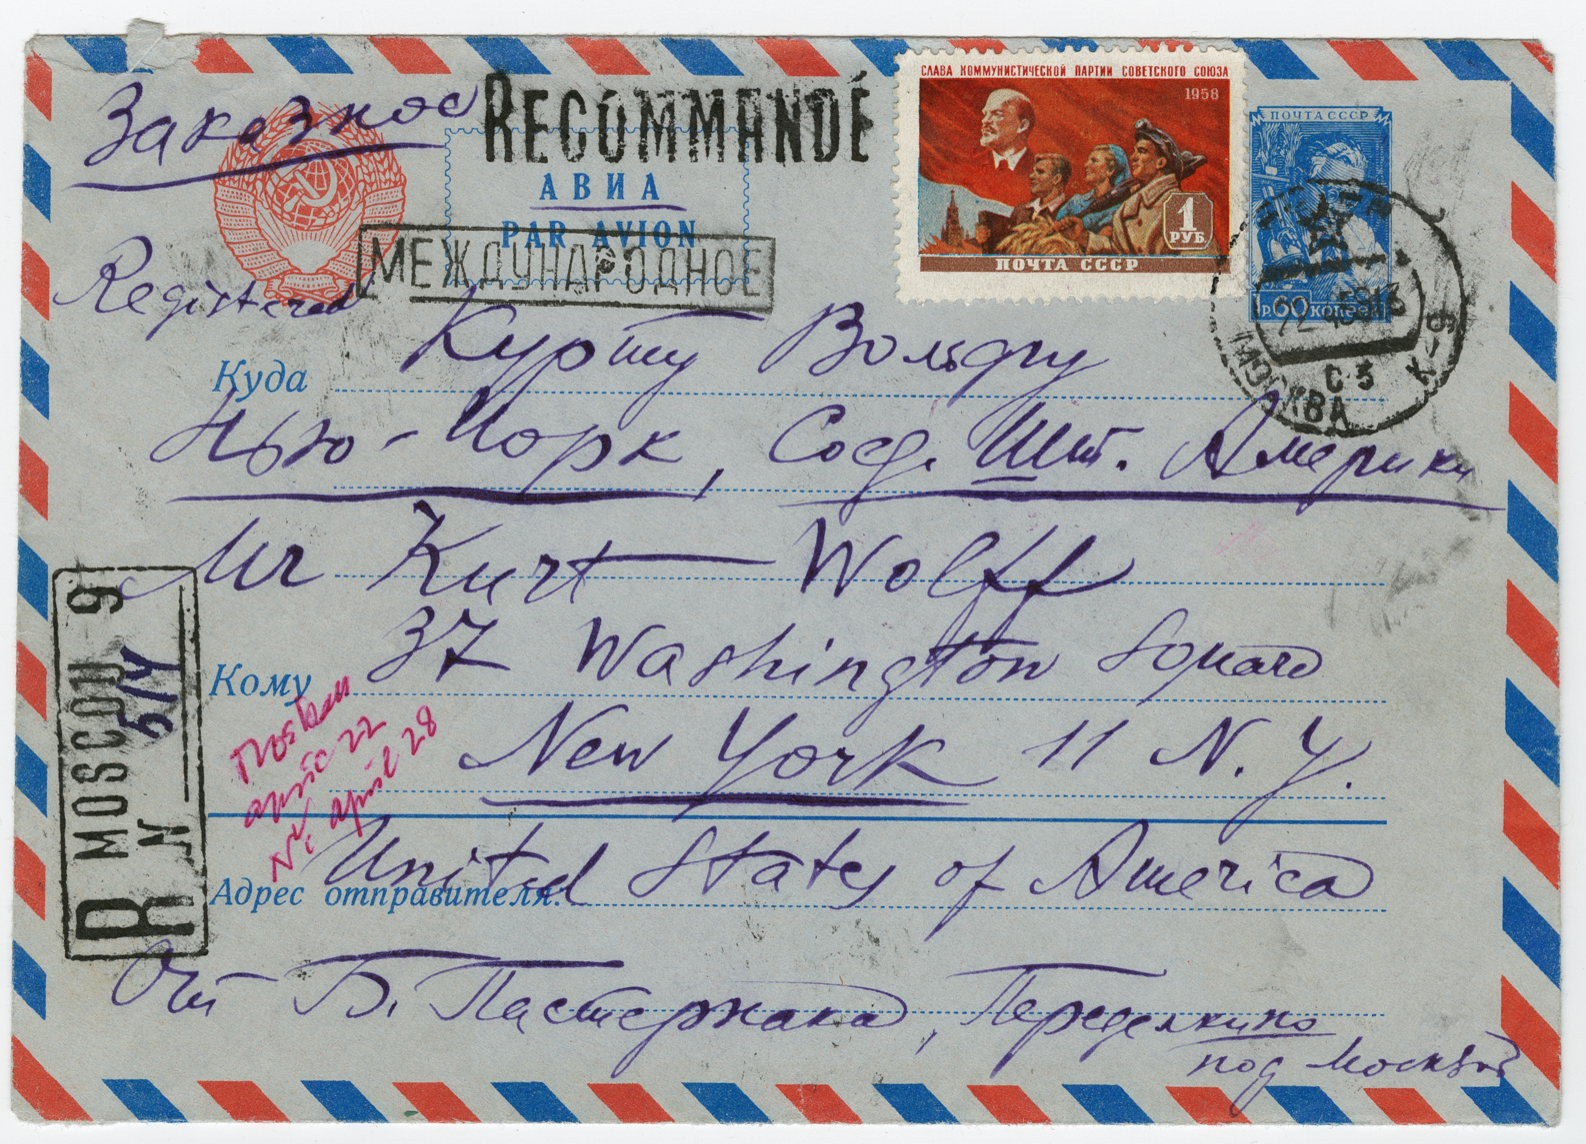 Заказное
RECOMMANDÉ
АВИА
PAR AVION
МЕЖДУНАРОДНОЕ
Registered
СЛАВА КОММУНИСТИЧЕСКОЙ ПАРТИИ СОВЕТСКОГО СОЮЗА
1958
1 РУБ.
ПОЧТА СССР
ПОЧТА СССР
60 КОПЕЕК
МОСКВА К-9
С-3
Куда
Курту Вольфу
Нью-Йорк, Соед. Шт. Америки
Mr Kurt Wolff
Кому
37 Washington Square
New York 11 N. Y.
United States of America
R MOSCOU 9
N 514
april 22
april 28
Адрес отправителя:
От Б. Пастернака, Переделкино
под Москвой